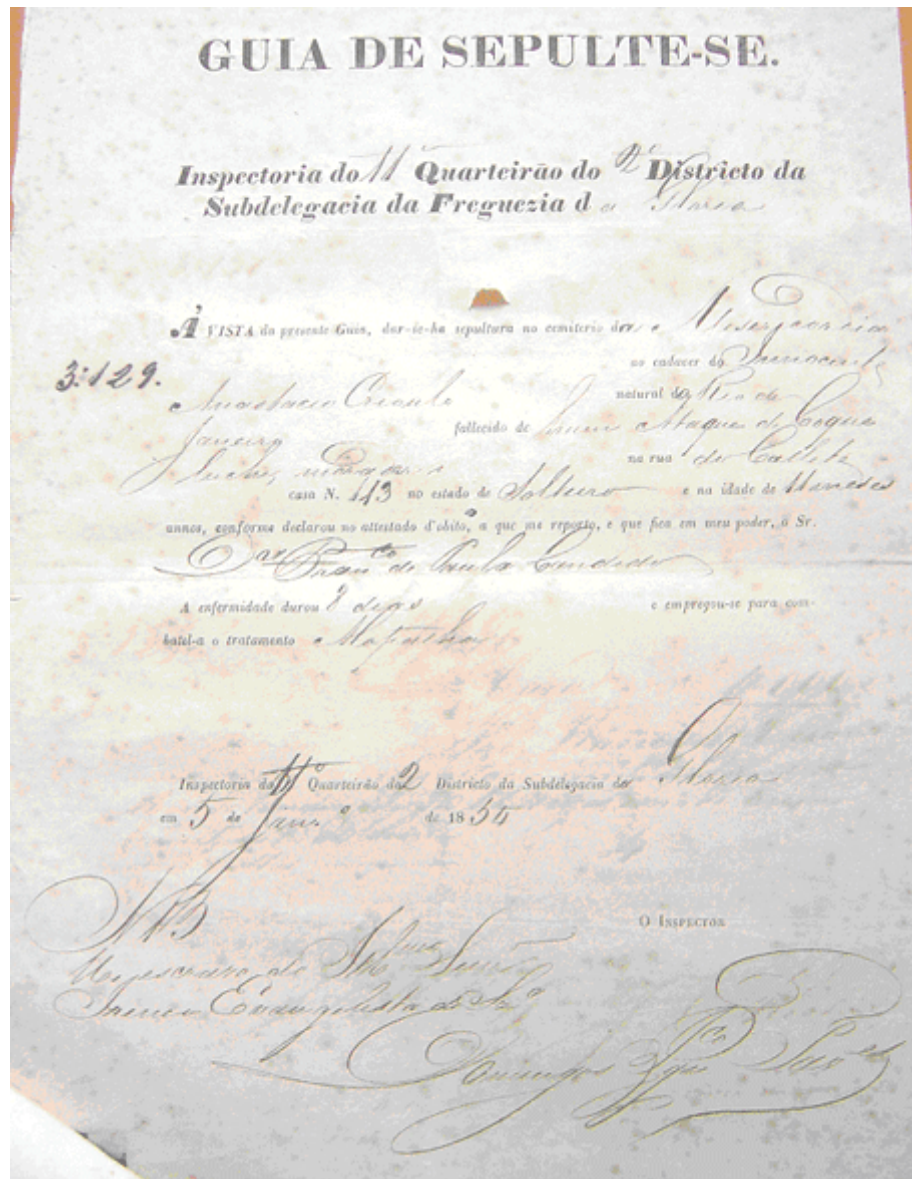 GUIA DE SEPULTE-SE.
Inspectoria do 11º Quarteirão do 2º Districto da
Subdelegacia da Freguezia d a Gloria
Á VISTA da presente Guia, dar-se-ha sepultura no cemiterio da Misericordia
ao cadaver do Innocente
3:129.
Anastacio Crioulo natural do Rio de
Janeiro fallecido de hum Ataque de
na rua do Cattete
casa N. 143 no estado de Solteiro e na idade de 11 meses
annos, conforme declarou no attestado d'obito, a que me reporto, e que fica em meu poder, o Sr.
Dor Franco de Paula Candido
A enfermidade durou 8 dias e empregou-se para com-
batel-a o tratamento
Inspectoria do 11º Quarteirão do 2 Districto da Subdelegacia da Gloria
em 5 de Janr.o de 1854
O INSPECTOR
NB
escravo do
Evangelista de
Domingos